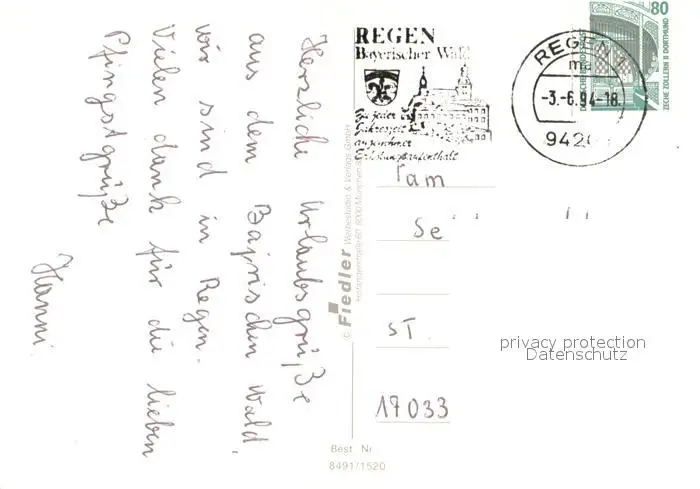 Herzliche Urlaubsgrüße
aus dem Bayrischen Wald.
wir sind in Regen.
Vielen dank für die lieben
Pfingstgrüße
Hanni.
© Fiedler Werbestudio & Verlags GmbH
REGEN
Bayerischer Wald
Zu jeder
Jahreszeit
angenehmer
Erholungsaufenthalt
REGEN 1
ma
-3.-6.94-18
9420
80
DEUTSCHE BUNDESPOST
ZECHE ZOLLERN II DORTMUND
Fam
Se
ST.
17033
privacy protection
Datenschutz
Best. Nr.
8491/1520